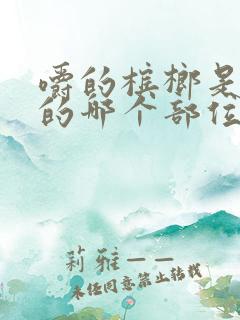 嚼的槟榔是
的那个部位
莉雅——
未经同意禁止转载